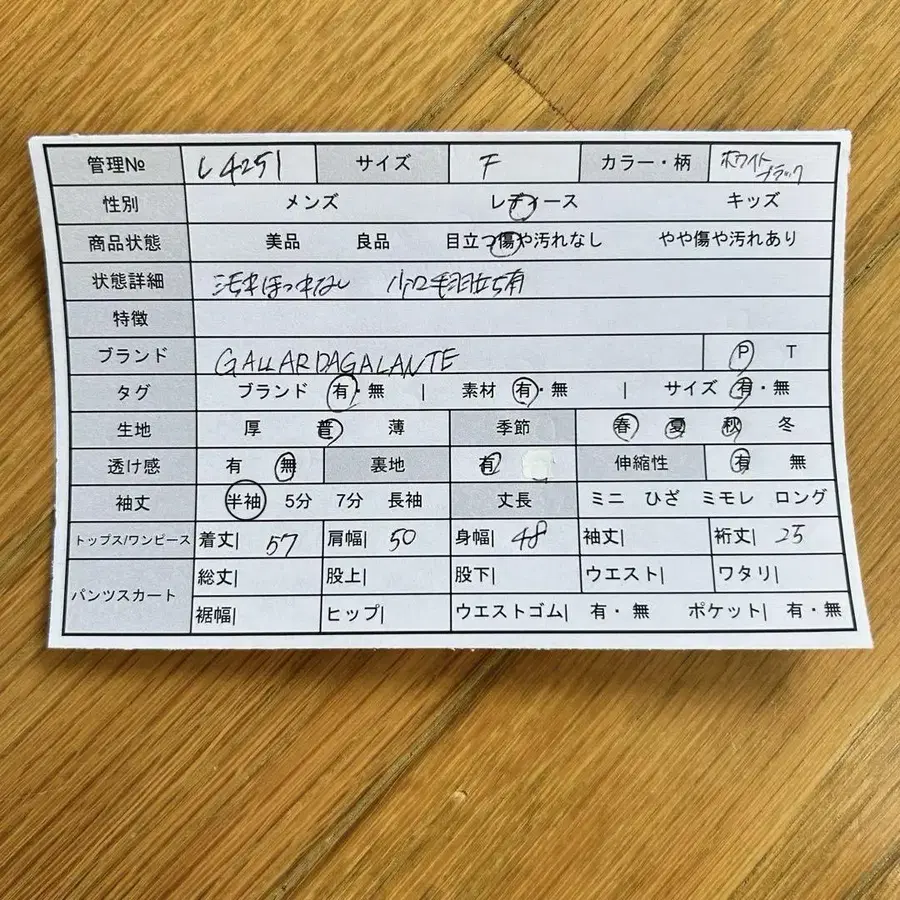 管理№ L4251 サイズ F カラー・柄 ホワイト ブラック
性別 メンズ レディース キッズ
商品状態 美品 良品 目立つ傷や汚れなし やや傷や汚れあり
状態詳細 汚れほつれなし 小口毛羽立ち有
特徴
ブランド GALLARDAGALANTE P T
タグ ブランド 有・無 | 素材 有・無 | サイズ 有・無
生地 厚 普 薄 季節 春 夏 秋 冬
透け感 有 無 裏地 有 伸縮性 有 無
袖丈 半袖 5分 7分 長袖 丈長 ミニ ひざ ミモレ ロング
トップス/ワンピース 着丈| 57 肩幅| 50 身幅| 48 袖丈| 裄丈| 25
パンツスカート 総丈| 股上| 股下| ウエスト| ワタリ|
裾幅| ヒップ| ウエストゴム| 有・無 ポケット| 有・無